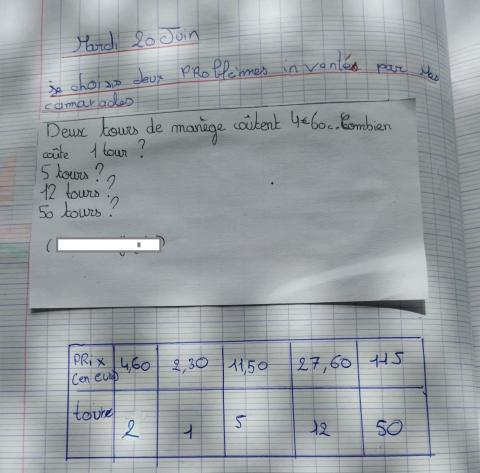 Mardi 20 Juin
Je choisis deux PROblèmes inventés par mes
camarades
Deux tours de manège coûtent 4€60c. Combien
coûte 1 tour ?
5 tours ?
12 tours ?
50 tours ?
PRix (en euro) 4,60 2,30 11,50 27,60 115
tours 2 1 5 12 50